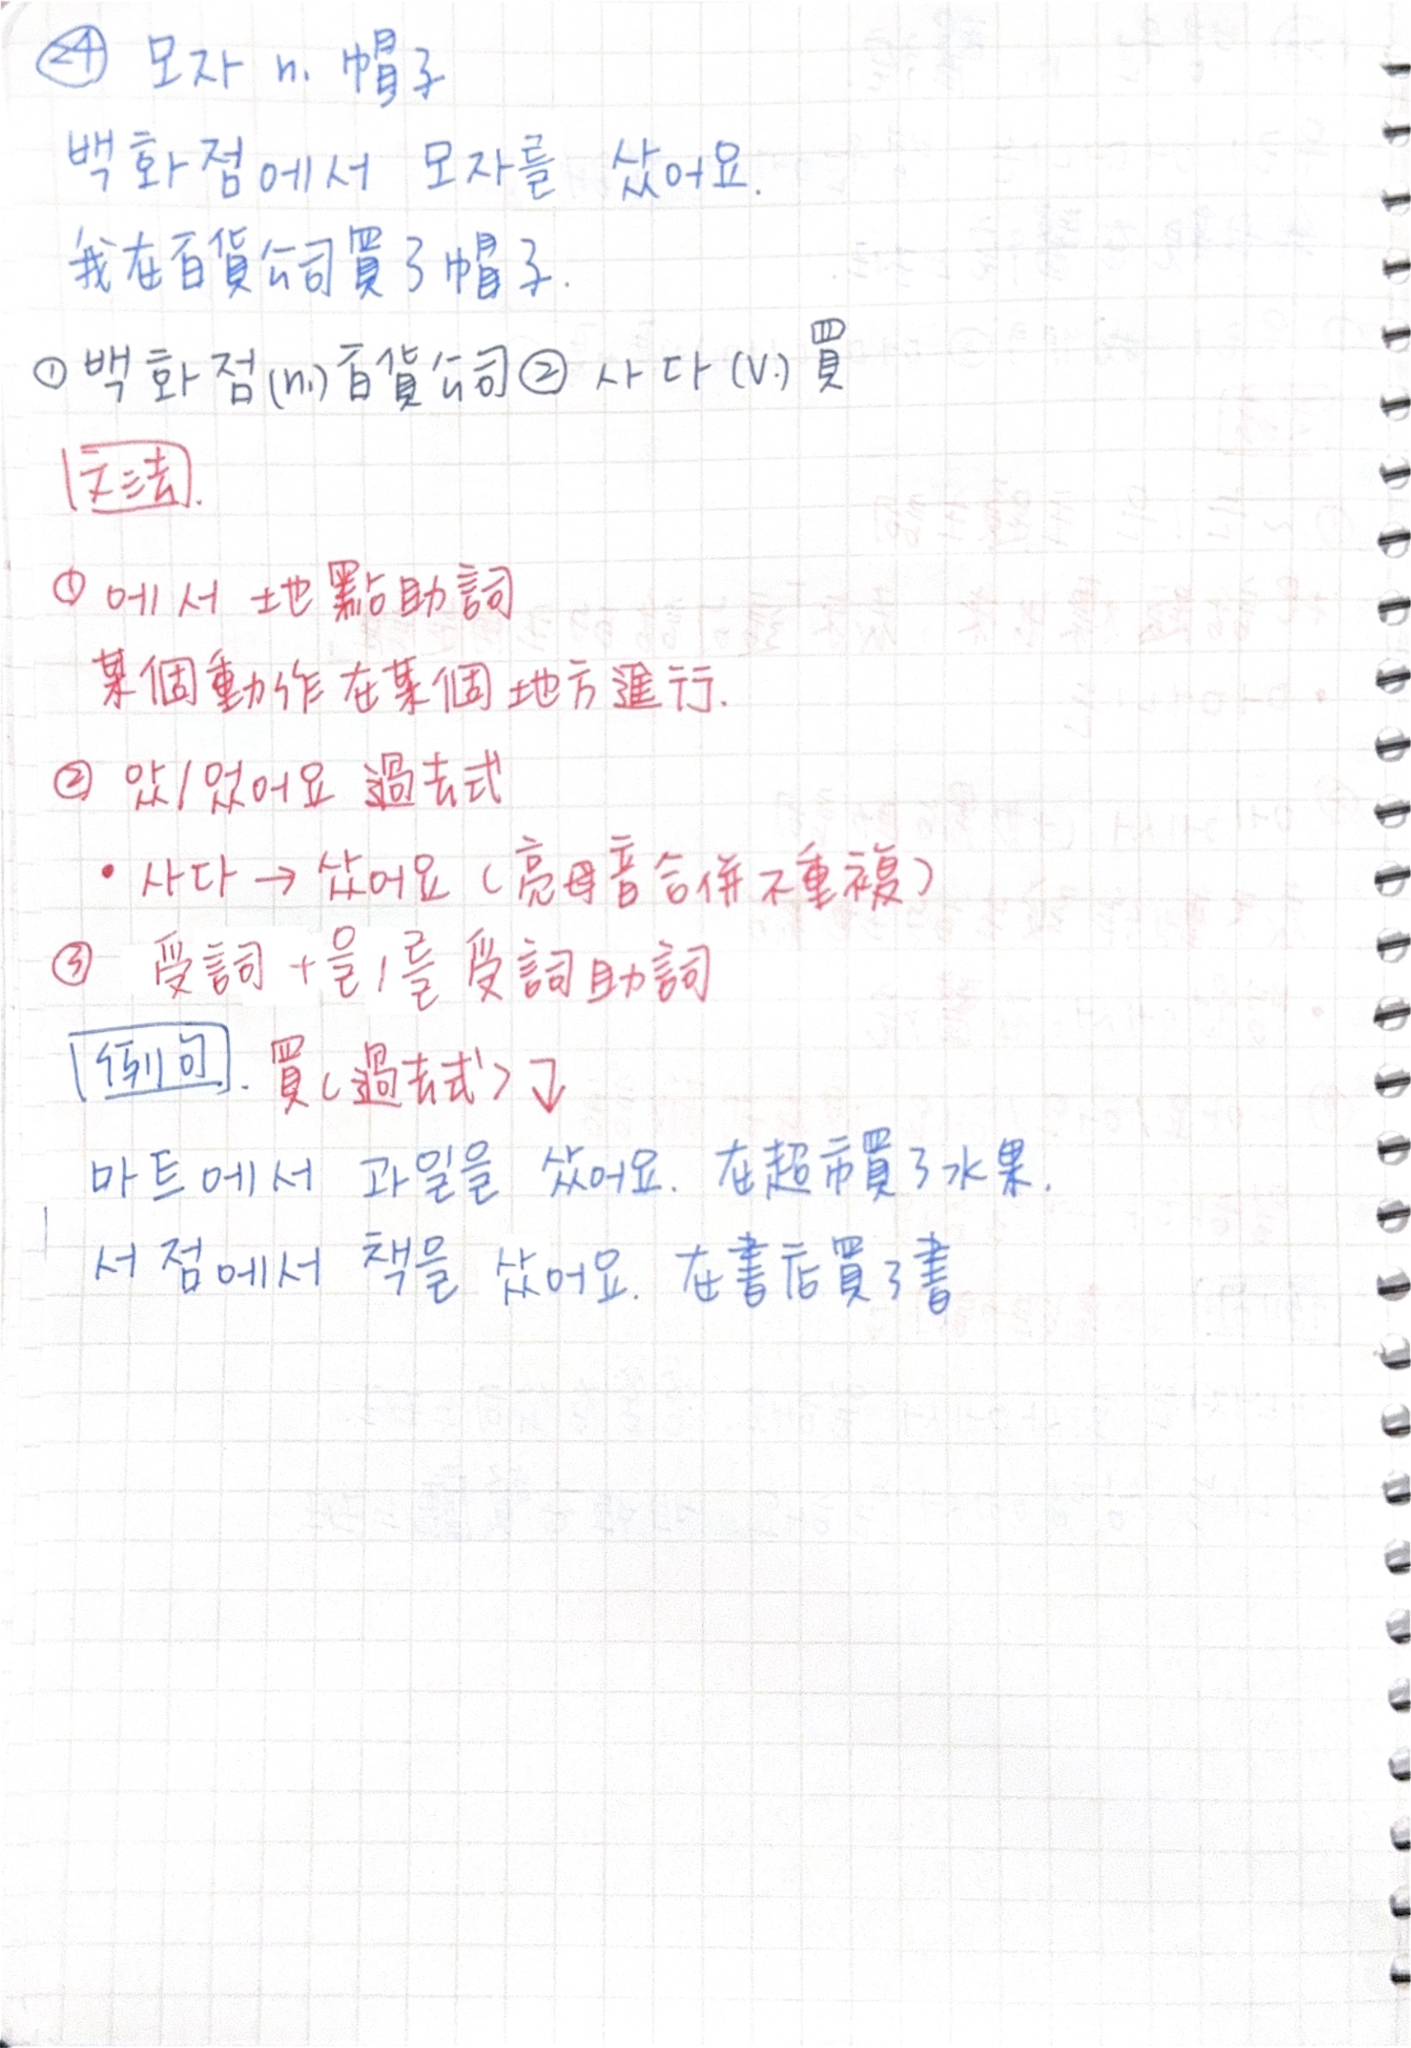 ㉔ 모자 n. 帽子
백화점에서 모자를 샀어요.
我在百貨公司買了帽子.
① 백화점(n.)百貨公司 ② 사다(v.)買
文法.
① 에서 地點助詞
某個動作在某個地方進行.
② 았/었어요 過去式
• 사다 → 샀어요 (亮母音合併不重複)
③ 受詞 + 을/를 受詞助詞
例句. 買(過去式)↴
마트에서 과일을 샀어요. 在超市買了水果.
서점에서 책을 샀어요. 在書店買了書